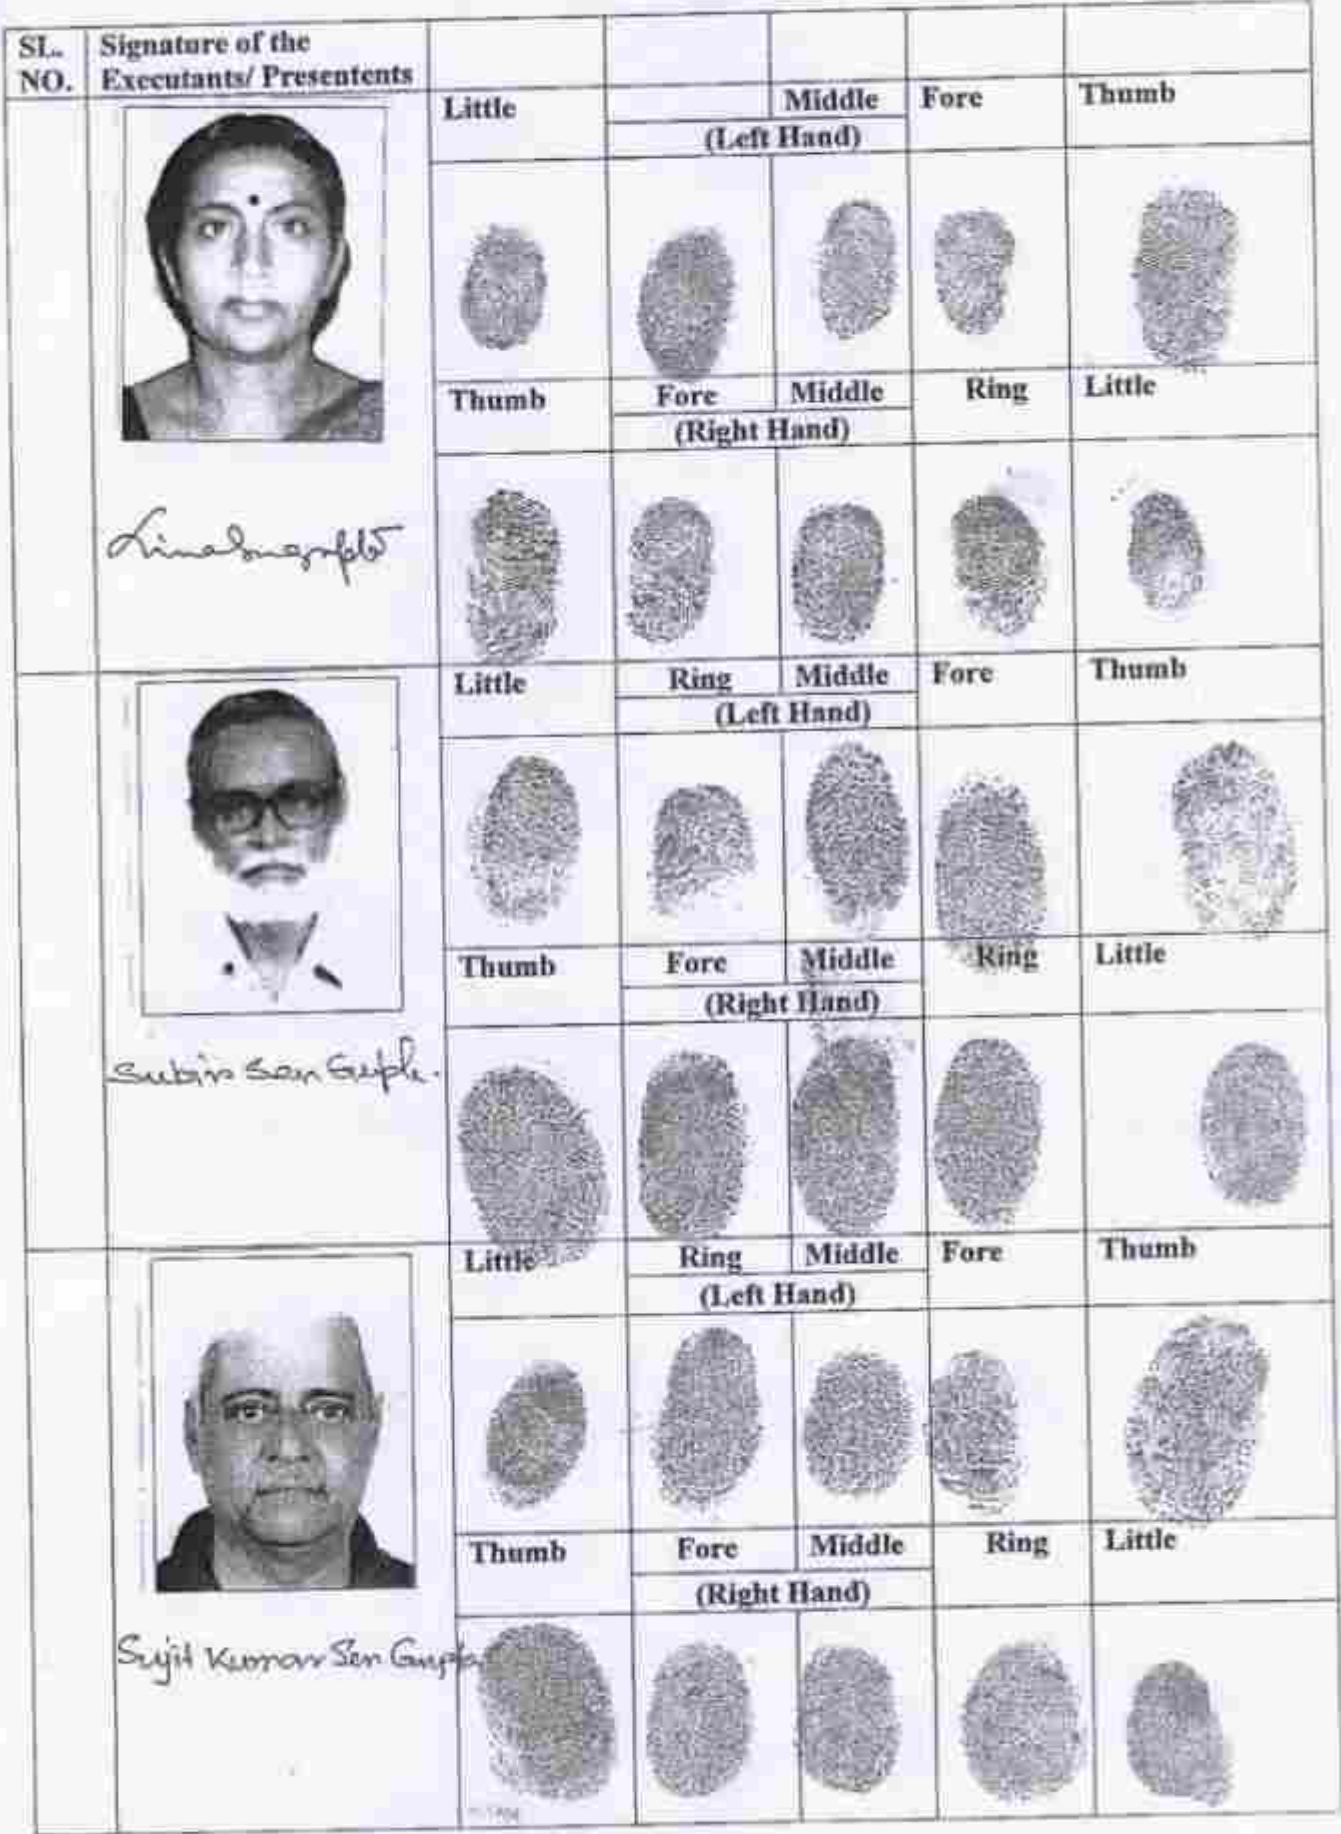 SL. NO.
Signature of the Executants/ Presentents
Little Middle Fore Thumb
(Left Hand)
Thumb Fore Middle Ring Little
(Right Hand)
Little Ring Middle Fore Thumb
(Left Hand)
Thumb Fore Middle Ring Little
(Right Hand)
Subir Sen Gupta.
Little Ring Middle Fore Thumb
(Left Hand)
Thumb Fore Middle Ring Little
(Right Hand)
Sujit Kumar Sen Gupta